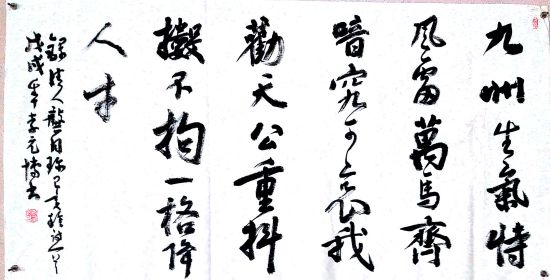 九州生氣恃
风雷萬馬齊
喑究可哀我
勸天公重抖
擻不拘一格降
人才
錄清人龔自珍己亥雜詩一首
戊戌年李元博书